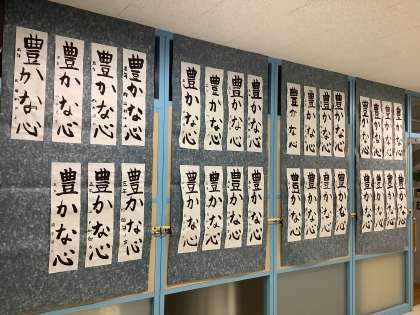 豊かな心
豊かな心
豊かな心
豊かな心
豊かな心
豊かな心
豊かな心
豊かな心
豊かな心
豊かな心
豊かな心
豊かな心
豊かな心
豊かな心
豊かな心
豊かな心
豊かな心
豊かな心
豊かな心
豊かな心
豊かな心
豊かな心
豊かな心
豊かな心
豊かな心
豊かな心
豊かな心
豊かな心
豊かな心
豊かな心
豊かな心